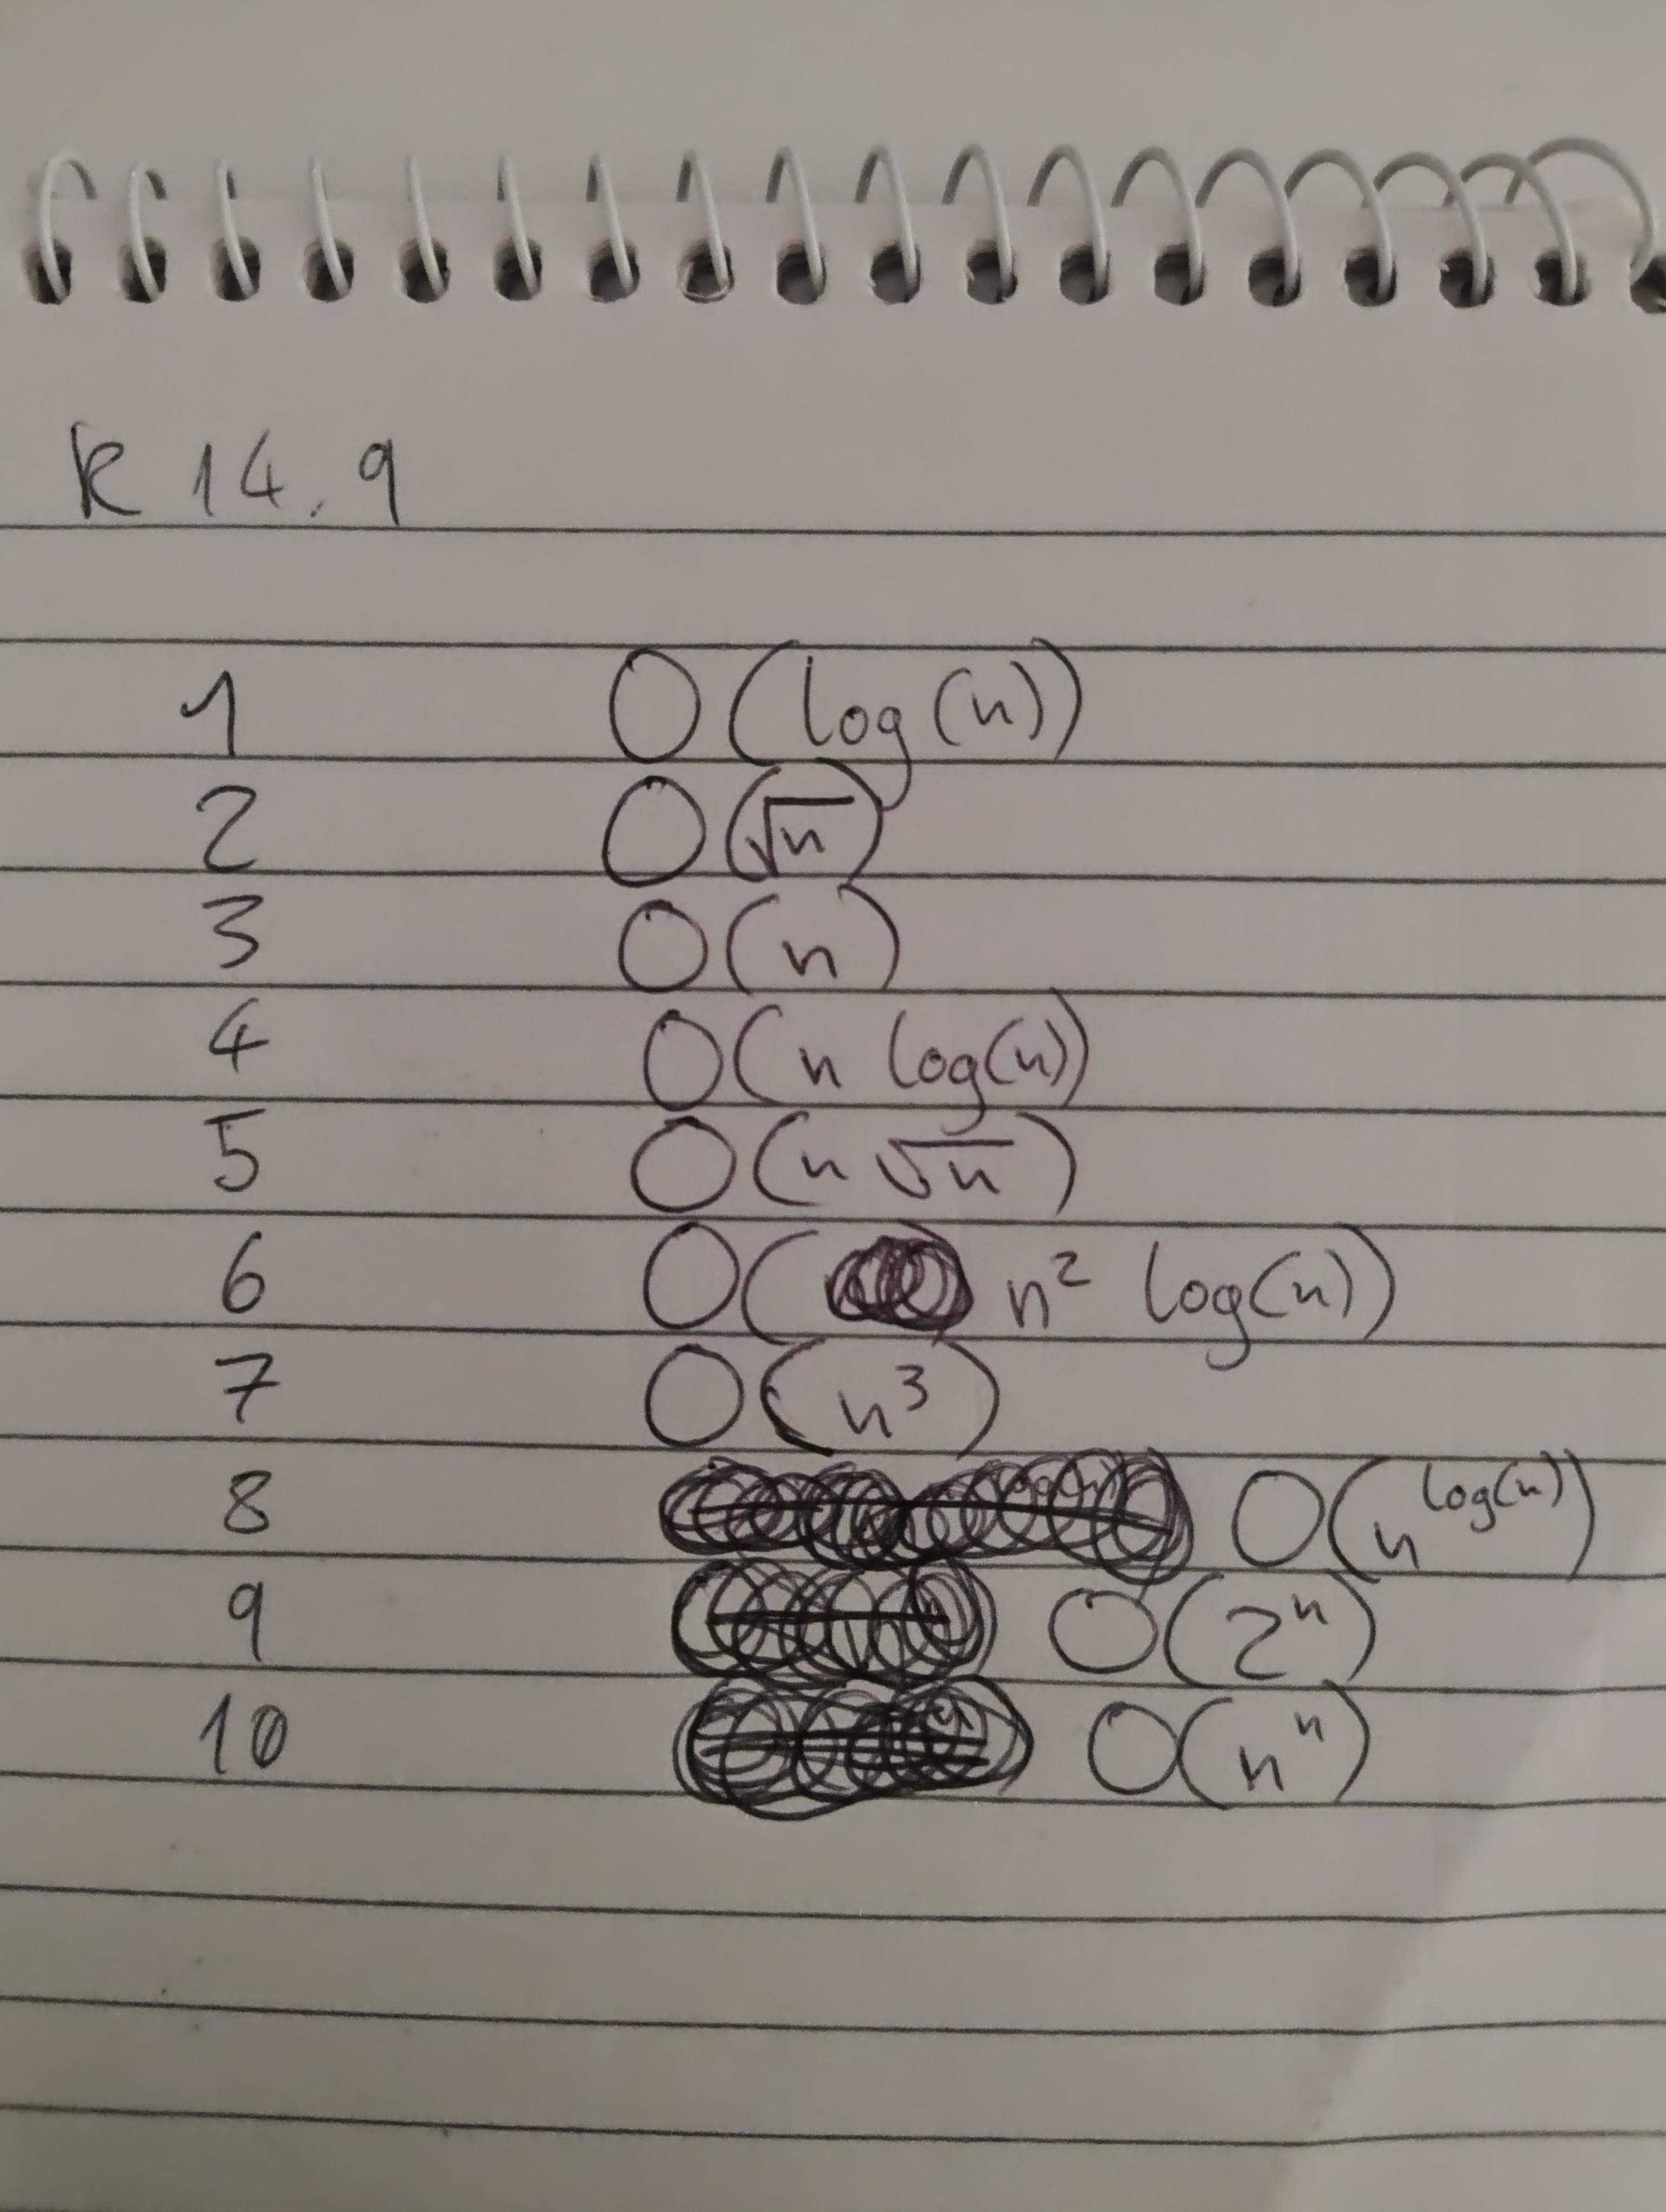 R 14.9
1 O(log(n))
2 O(√n)
3 O(n)
4 O(n log(n))
5 O(n √n)
6 O( n² log(n))
7 O(n³)
8 O(n^log(n))
9 O(2ⁿ)
10 O(nⁿ)